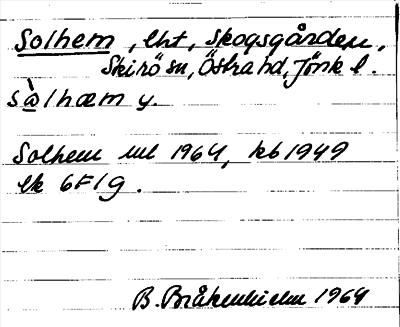 Solhem, lht, Skogsgården,
Skirö sn, Östra hd, Jönk l.
sὰlhæm y.
Solhem ml 1964, kb 1949
ek 6F1g.
B. Bråkenhielm 1964